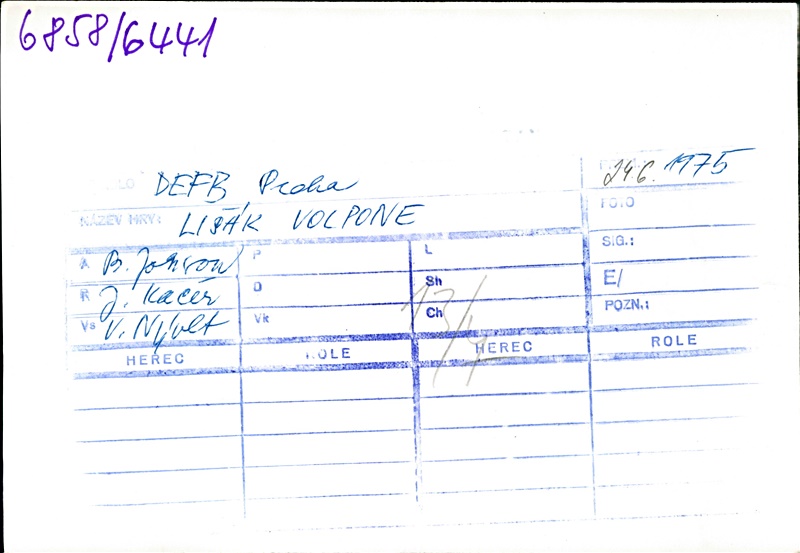 6858/6441
DEFB, Praha 24.6. 1975
NÁZEV HRY: LIŠÁK VOLPONE FOTO
A B. Jonson P L SIG.:
R J. Kačer O Sh E/
Vs V. Nývlt Vk Ch POZN.:
13/4
HEREC ROLE HEREC ROLE